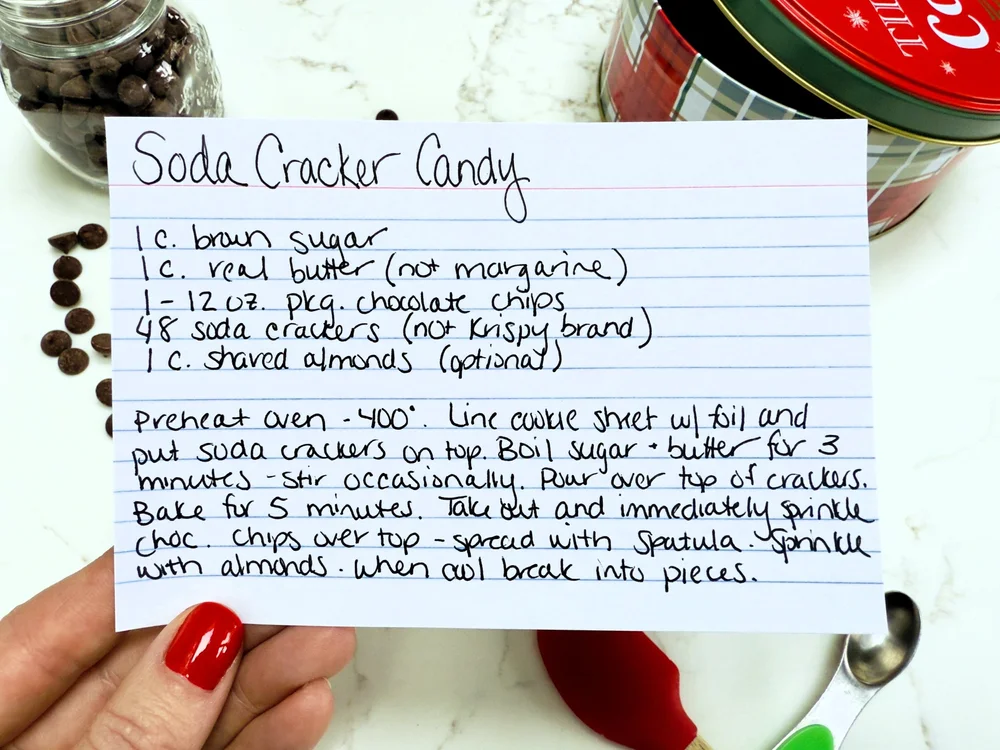 Soda Cracker Candy
1 c. brown sugar
1 c. real butter (not margarine)
1 - 12 oz. pkg. chocolate chips
48 soda crackers (not Krispy brand)
1 c. shaved almonds (optional)
Preheat oven - 400°. Line cookie sheet w/ foil and
put soda crackers on top. Boil sugar + butter for 3
minutes - stir occasionally. Pour over top of crackers.
Bake for 5 minutes. Take out and immediately sprinkle
choc. chips over top - spread with spatula. Sprinkle
with almonds. When cool break into pieces.